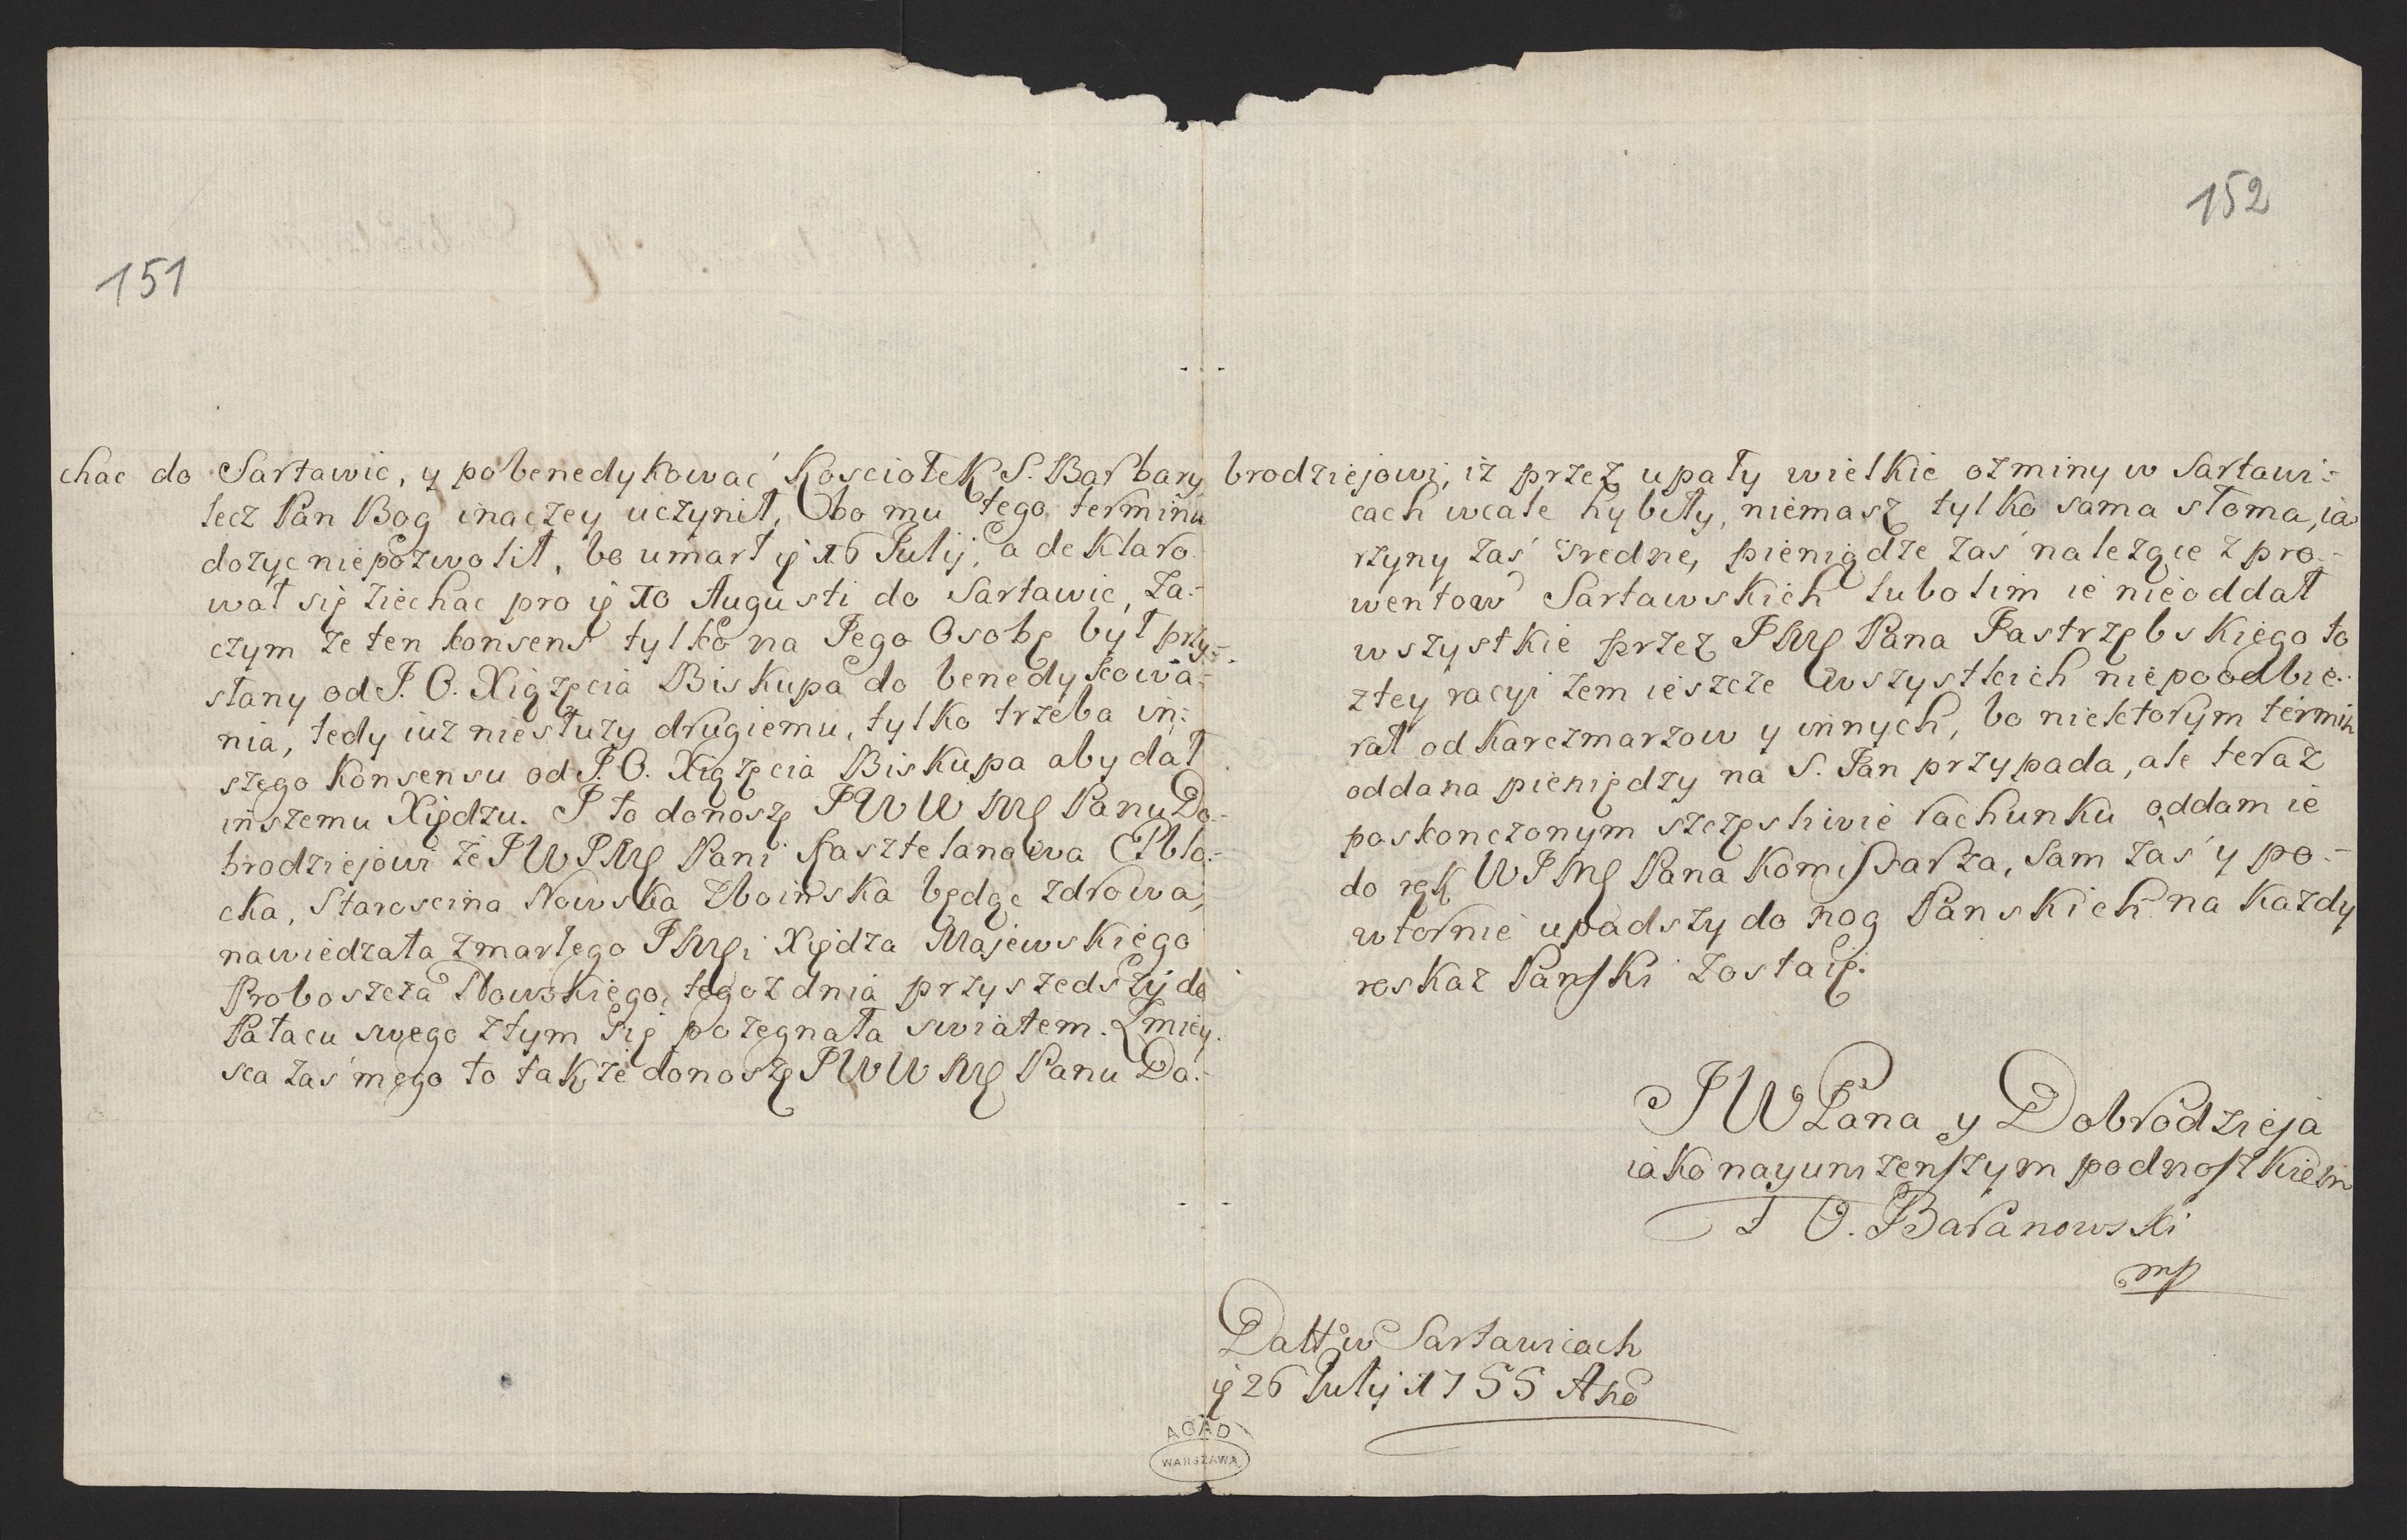 151
chac do Sartawic, y pobenedykować Kosciołek S. Barbary
lecz Pan Bog inaczey uczynił, bo mu tego terminu
dożyc niepozwolił, bo umarł 16 Julij, a deklaro-
wał się ziechac pro 10 Augusti do Sartawic, Za-
czym że ten konsens tylko na Jego Osobę był przy-
słany od J. O. Xiążęcia Biskupa do benedykowa-
nia, tedy iuz niesłuzy drugiemu, tylko trzeba in-
szego Konsensu od J. O. Xiążęcia Biskupa aby dał
inszemu Xiędzu. I to donoszę JWWMę Panu Do-
brodziejowi że JWJMę Pani Kasztelanowa Elblą-
cka, Staroscina Nowska Zboinska będąc zdrowa,
nawiedzała zmarłego JMę Xiędza Majewskiego
Proboszcza Nowskiego, tegoz dnia przyszedszy do
Pałacu swego ztym się pożegnała swiatem. Zmiey-
sca zaś mego to takze donoszę JWWMę Panu Do-
152
brodziejowi, iż przez upały wielkie ozminy w Sartawi-
cach wcale hybiły, niemasz tylko sama słoma, ia
rzyny zaś srednie, pieniądze zaś nalezące z pro-
wentow Sartawskich lubolim ie nieoddał
wszystkie przez JMę Pana Jastrzębskiego to
ztey racyi żem ieszcze wszystkich niepoodbie-
rał od karczmarzow y innych, bo niektorym termin
oddana pieniędzy na S. Jan przypada, ale teraz
poskonczonym szczęsliwie rachunku oddam ie
do ręk WJMę Pana Komissarza, Sam zaś y po-
wtornie upadszy do nog Panskich na kazdy
roskaz Panski zostaię.
JWPana y Dobrodzieja
iako nayunizenszym podnoszkiem
O. Baranowski
mp
Datt w Sartawicach
26 Julij 1755 Anno
AGAD
WARSZAWA